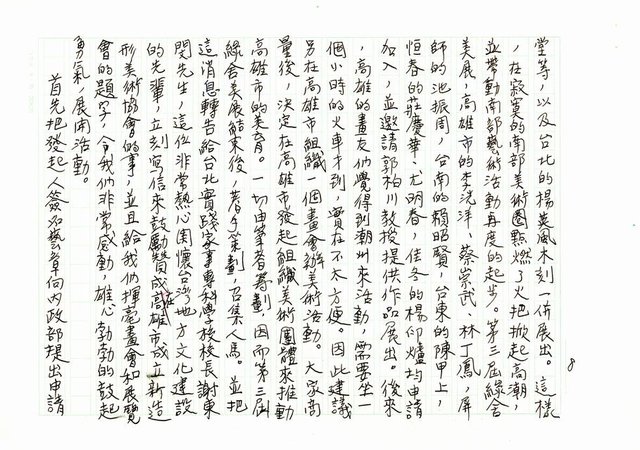 8
堂等，以及台北的楊英風木刻一併展出。這樣
，在寂寞的南部美術圈點燃了火把掀起高潮，
並帶動南部藝術活動再度的起步。第三屆綜合
美展，高雄市的李洗洋、蔡崇武、林丁鳳，屏
師的池振周，台南的賴昭賢，台東的陳甲上，
恒春的莊慶華、尤明春，佳冬的楊仰爐均申請
加入，並邀請郭柏川教授提供作品展出。後來
，高雄的畫友們覺得到潮州來活動，需要坐一
個小時的火車才到，實在不太方便。因此建議
另在高雄市組織一個畫會辦美術活動。大家商
量後，決定在高雄市發起組織美術團體來推動
高雄市的美育。一切由筆者籌劃，因而第三屆
綜合美展結束後，着手策劃，召集人馬。並把
這消息轉告給台北實踐家事專科學校校長謝東
閔先生，這位非常熱心関懷台灣地方文化建設
的先輩，立刻寫信來鼓勵贊成在高雄市成立新造
形美術協會的事，並且給我們揮毫畫會和展覽
會的題字，令我們非常感動，雄心勃勃的鼓起
勇氣，展開活動。
首先把發起人簽名藝草向內政部提出申請